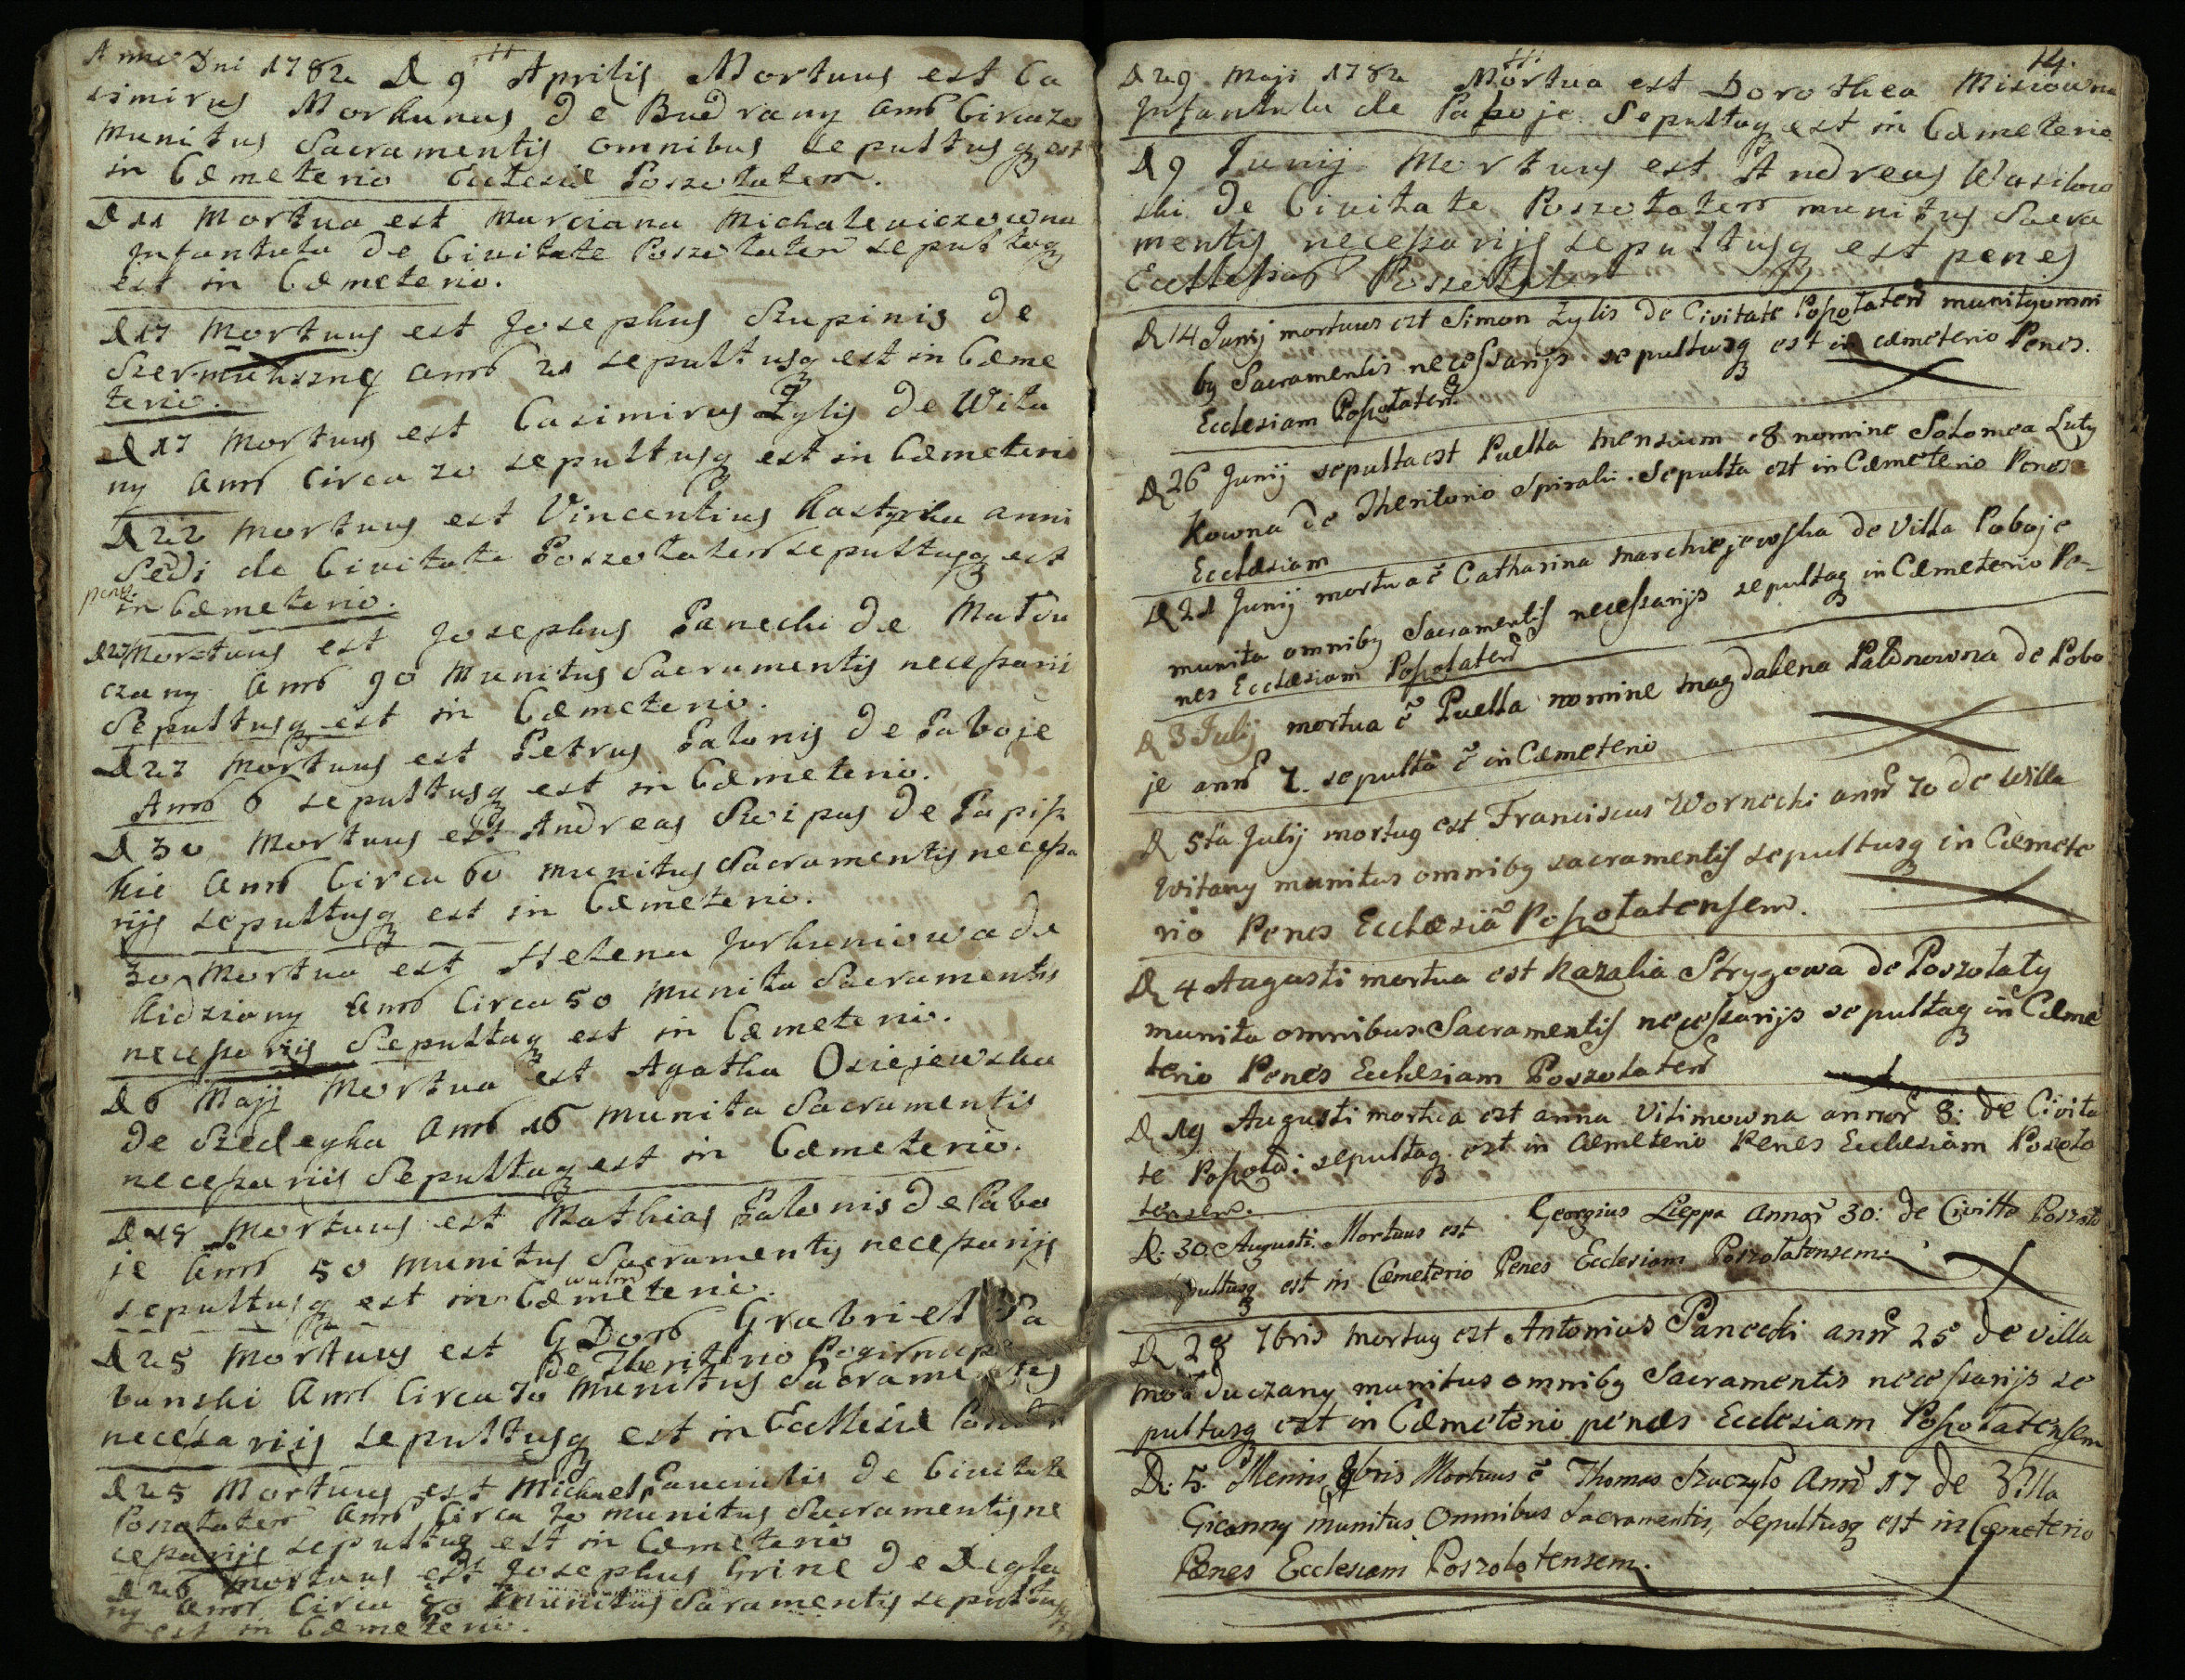 Anno Dni 1782 D 9 Aprilis Mortuus est Ca
simirus Morkunas de Budrany ann Circa 20
munitus Sacramentis omnibus sepultusq est
in Cæmeterio Ecclesiæ Poszolaten.
D 11 Mortua est Marciana Michalewiczowna
Infantula de Civitate Poszolaten sepultaq
est in Cæmeterio.
D 17 Mortuus est Josephus Szupinis de
ann 21 sepultusq est in Cæme
terio.
D 17 Mortuus est Casimirus Zylis de Wita
ny ann Circa 20 sepultusq est in Cæmeterio
D 22 Mortuus est Vincentius Kastyrka anni
de Civitate Poszolaten sepultusq est
penes
in Cæmeterio.
D 27 Mortuus est Josephus Panecki de Matdu
czany ann 90 Munitus Sacramentis necessarii
Sepultusq est in Cæmeterio.
D 27 Mortuus est Petrus Palonis de Paboje
Ann 6 sepultusq est in Cæmeterio.
D 30 Mortuus est Andreas Swipas de Papiß
kie ann Circa 60 munitus Sacramentis necessa
rijs sepultusq est in Cæmeterio.
30 Mortua est Helena Jurkuniowa de
Kidziany ann Circa 50 munita Sacramentis
necessarijs Sepultaq est in Cæmeterio.
D 6 Maji Mortua est Agatha Osiejewska
de Szedeyka ann 16 munita Sacramentis
necessariis Sepultaq est in Cæmeterio.
D 18 Mortuus est Mathias Palonis de Pabo
je ann 50 munitus Sacramentis necessarijs
sepultusq est in Cæmeterio.
D 25 Mortuus est G Dom Grabriel Pa
de Theritorio
bunski ann Circa 70 munitus Sacramentis
necessariis sepultusq est in Ecclesiæ
D 25 Mortuus est Michael de Civitate
Poszolaten ann Circa 70 munitus Sacramentis ne
cessarijs sepultusq est in Cæmeterio
D 26 Mortuus est Josephus Grine de Degla
ny ann Circa 50 munitus Saramentis sepultusq
est in Cæmeterio.
14.
D 29 Maji 1782 Mortua est Dorothea Misiowna
Infantula de Paboje Sepultaq est in Cæmeterio
D 9 Junij Mortuus est Andreas Wasilew
ski de Civitate Poszolaten munitus Sacra
mentis necessarijs sepultusq est penes
Ecclesiam Poszolaten
D 14 Junij mortuus est Simon Zylis de Civitate Poßolaten munitq omni
bq Sacramentis necessarijs sepultusq est in cæmeterio Penes
Ecclesiam Poßolaten
D 26 Junij sepulta est Puella mensium 8 nomine Salomea Luty
kowna de Theritorio Spirali. Sepulta est in Cæmeterio Penes
Ecclæsiam
D 21 Junij mortua ẽ Catharina Marchiejewska de Villa Poboje
munita omnibq Sacramentis necessarijs sepultaq in Cæmeterio Pe=
nes Ecclæsiam Poßolaten
D 3 Julij mortua ẽ Puella nomine Magdalena Palonowna de Pobo
je ann 7. sepulta ẽ in Cæmeterio
D 5ta Julij mortuq est Franciscus Wornecki ann 70 de Willa
Witany munitus omnibq sacramentis sepultusq in Cæmete
rio Penes Ecclæsiã Poßolatensem.
D 4 Augusti mortua est Razalia Strygowa de Poszolaty
munita omnibus Sacramentis necessarijs sepultaq in Cæme
terio Penes Ecclæsiam Poszolaten
D 19 Augusti mortua est anna Vitimowna annor 8: de Civita
te Poßola: sepultaq est in Cæmeterio Penes Ecclæsiam Poszola
tensem.
D: 30 Augusti Mortuus est Georgius Lieppa Annor 30: de Civitte Poszola
pultusq est in Cæmeterio Penes Ecclesiam Poszolatensem.
D 28 7bris mortuq est Antonius Panecki ann 25 de villa
Motduczany munitus omnibq Sacramentis necessarijs se
pultusq est in Cæmeterio penæs Ecclesiam Poßolatensem
D: 5. Mensis bris Mortuus ẽ Thomas Szaczylo Ann 17 de Villa
Gicanny munitus Omnibus Sacramentis, Sepultusq est in Cæmeterio
Penes Ecclesiam Poszolotensem.